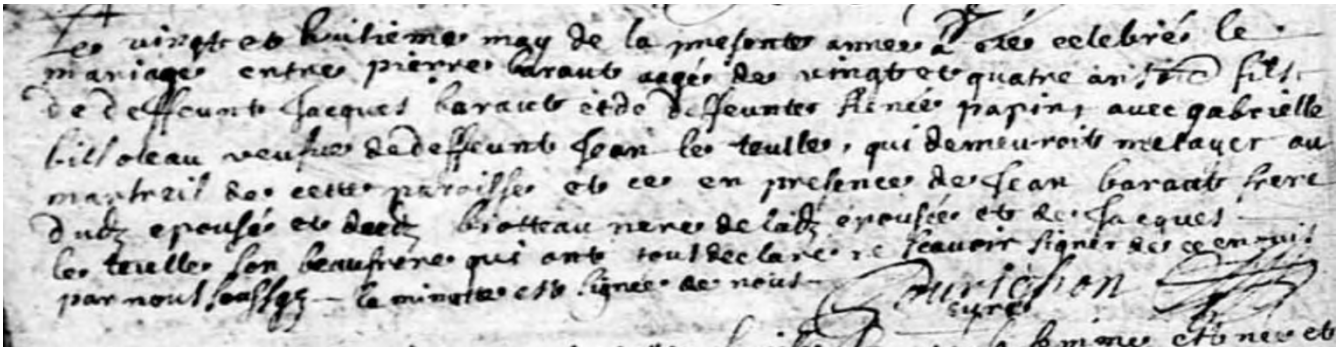 Le vingt et huitieme may de la presente annee a été celebré le
mariage entre pierre baraut aagé de vingt et quatre ans fils
de deffeunt Jacques baraut et de deffeunte Renée papin, avec gabrielle
billoteau veufve de deffeunt Jean le teulle, qui demeuroit metayer au
martreil de cette paroisse et ce en presence de Jean baraut frere
dudt epousé et biotteau pere de ladt épousée et de Jacques
le teulle son beaufrere qui ont tous declaré ne scavoir signer de ce enquis
par nous soussgz la minute est signée de nous
Sourichon
curé
la femme et